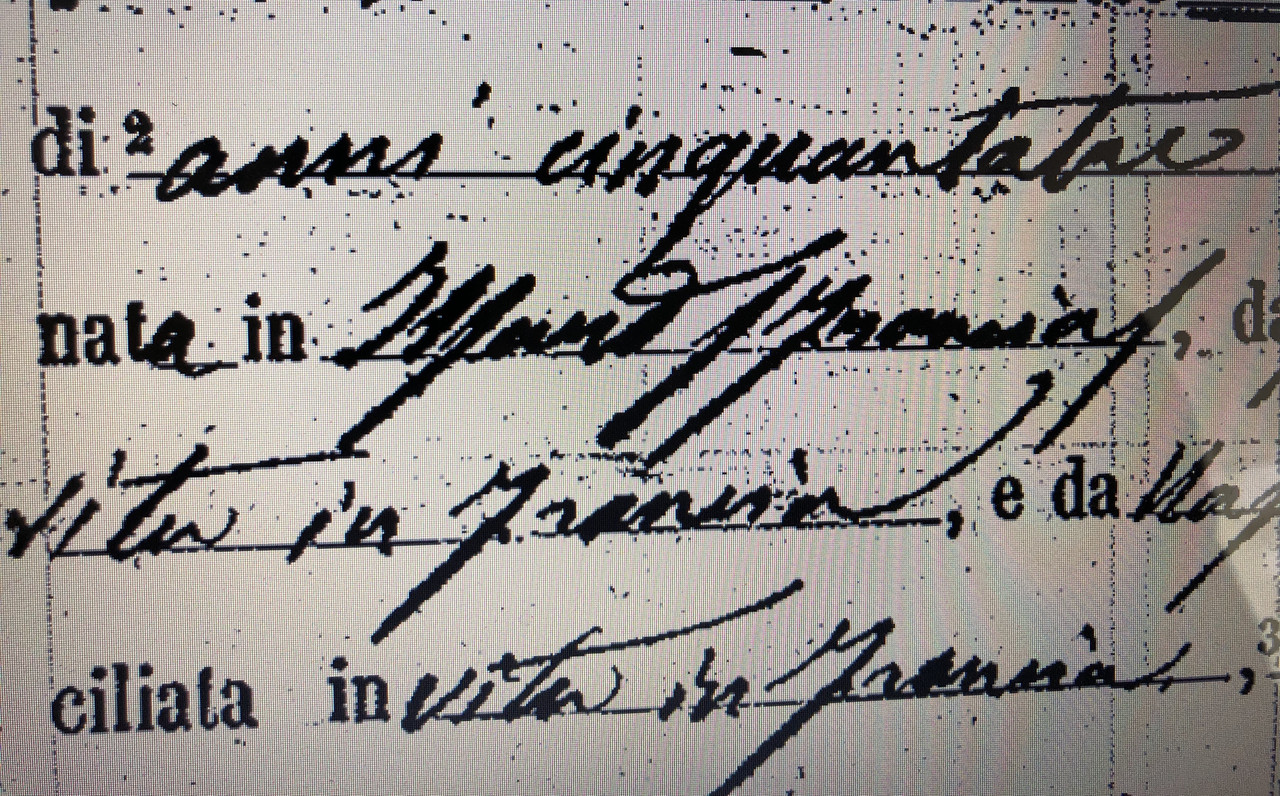 di ² anni cinquantatre
nata in (Francia), da
vita in Francia, e da
ciliata in vita in Francia, 3